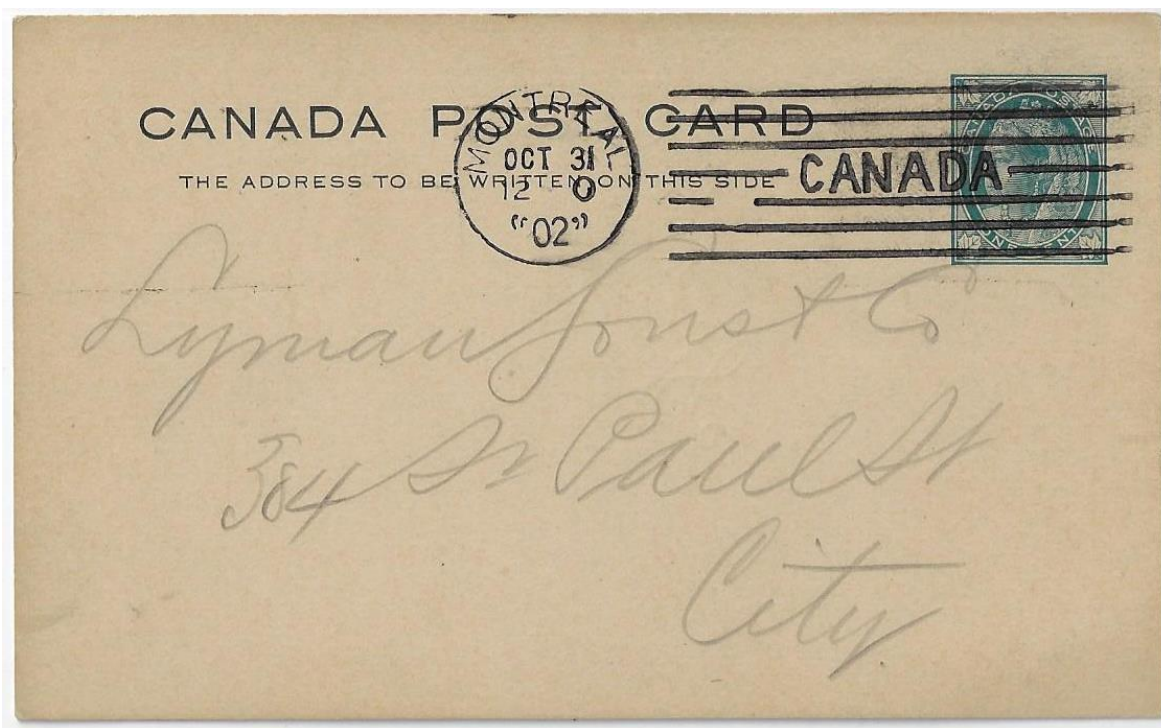 CANADA POST CARD
THE ADDRESS TO BE WRITTEN ON THIS SIDE
MONTREAL
OCT 31
12 0
"02"
CANADA
CANADA POSTAGE
ONE CENT
Lyman Sons & Co
384 St Paul St
City